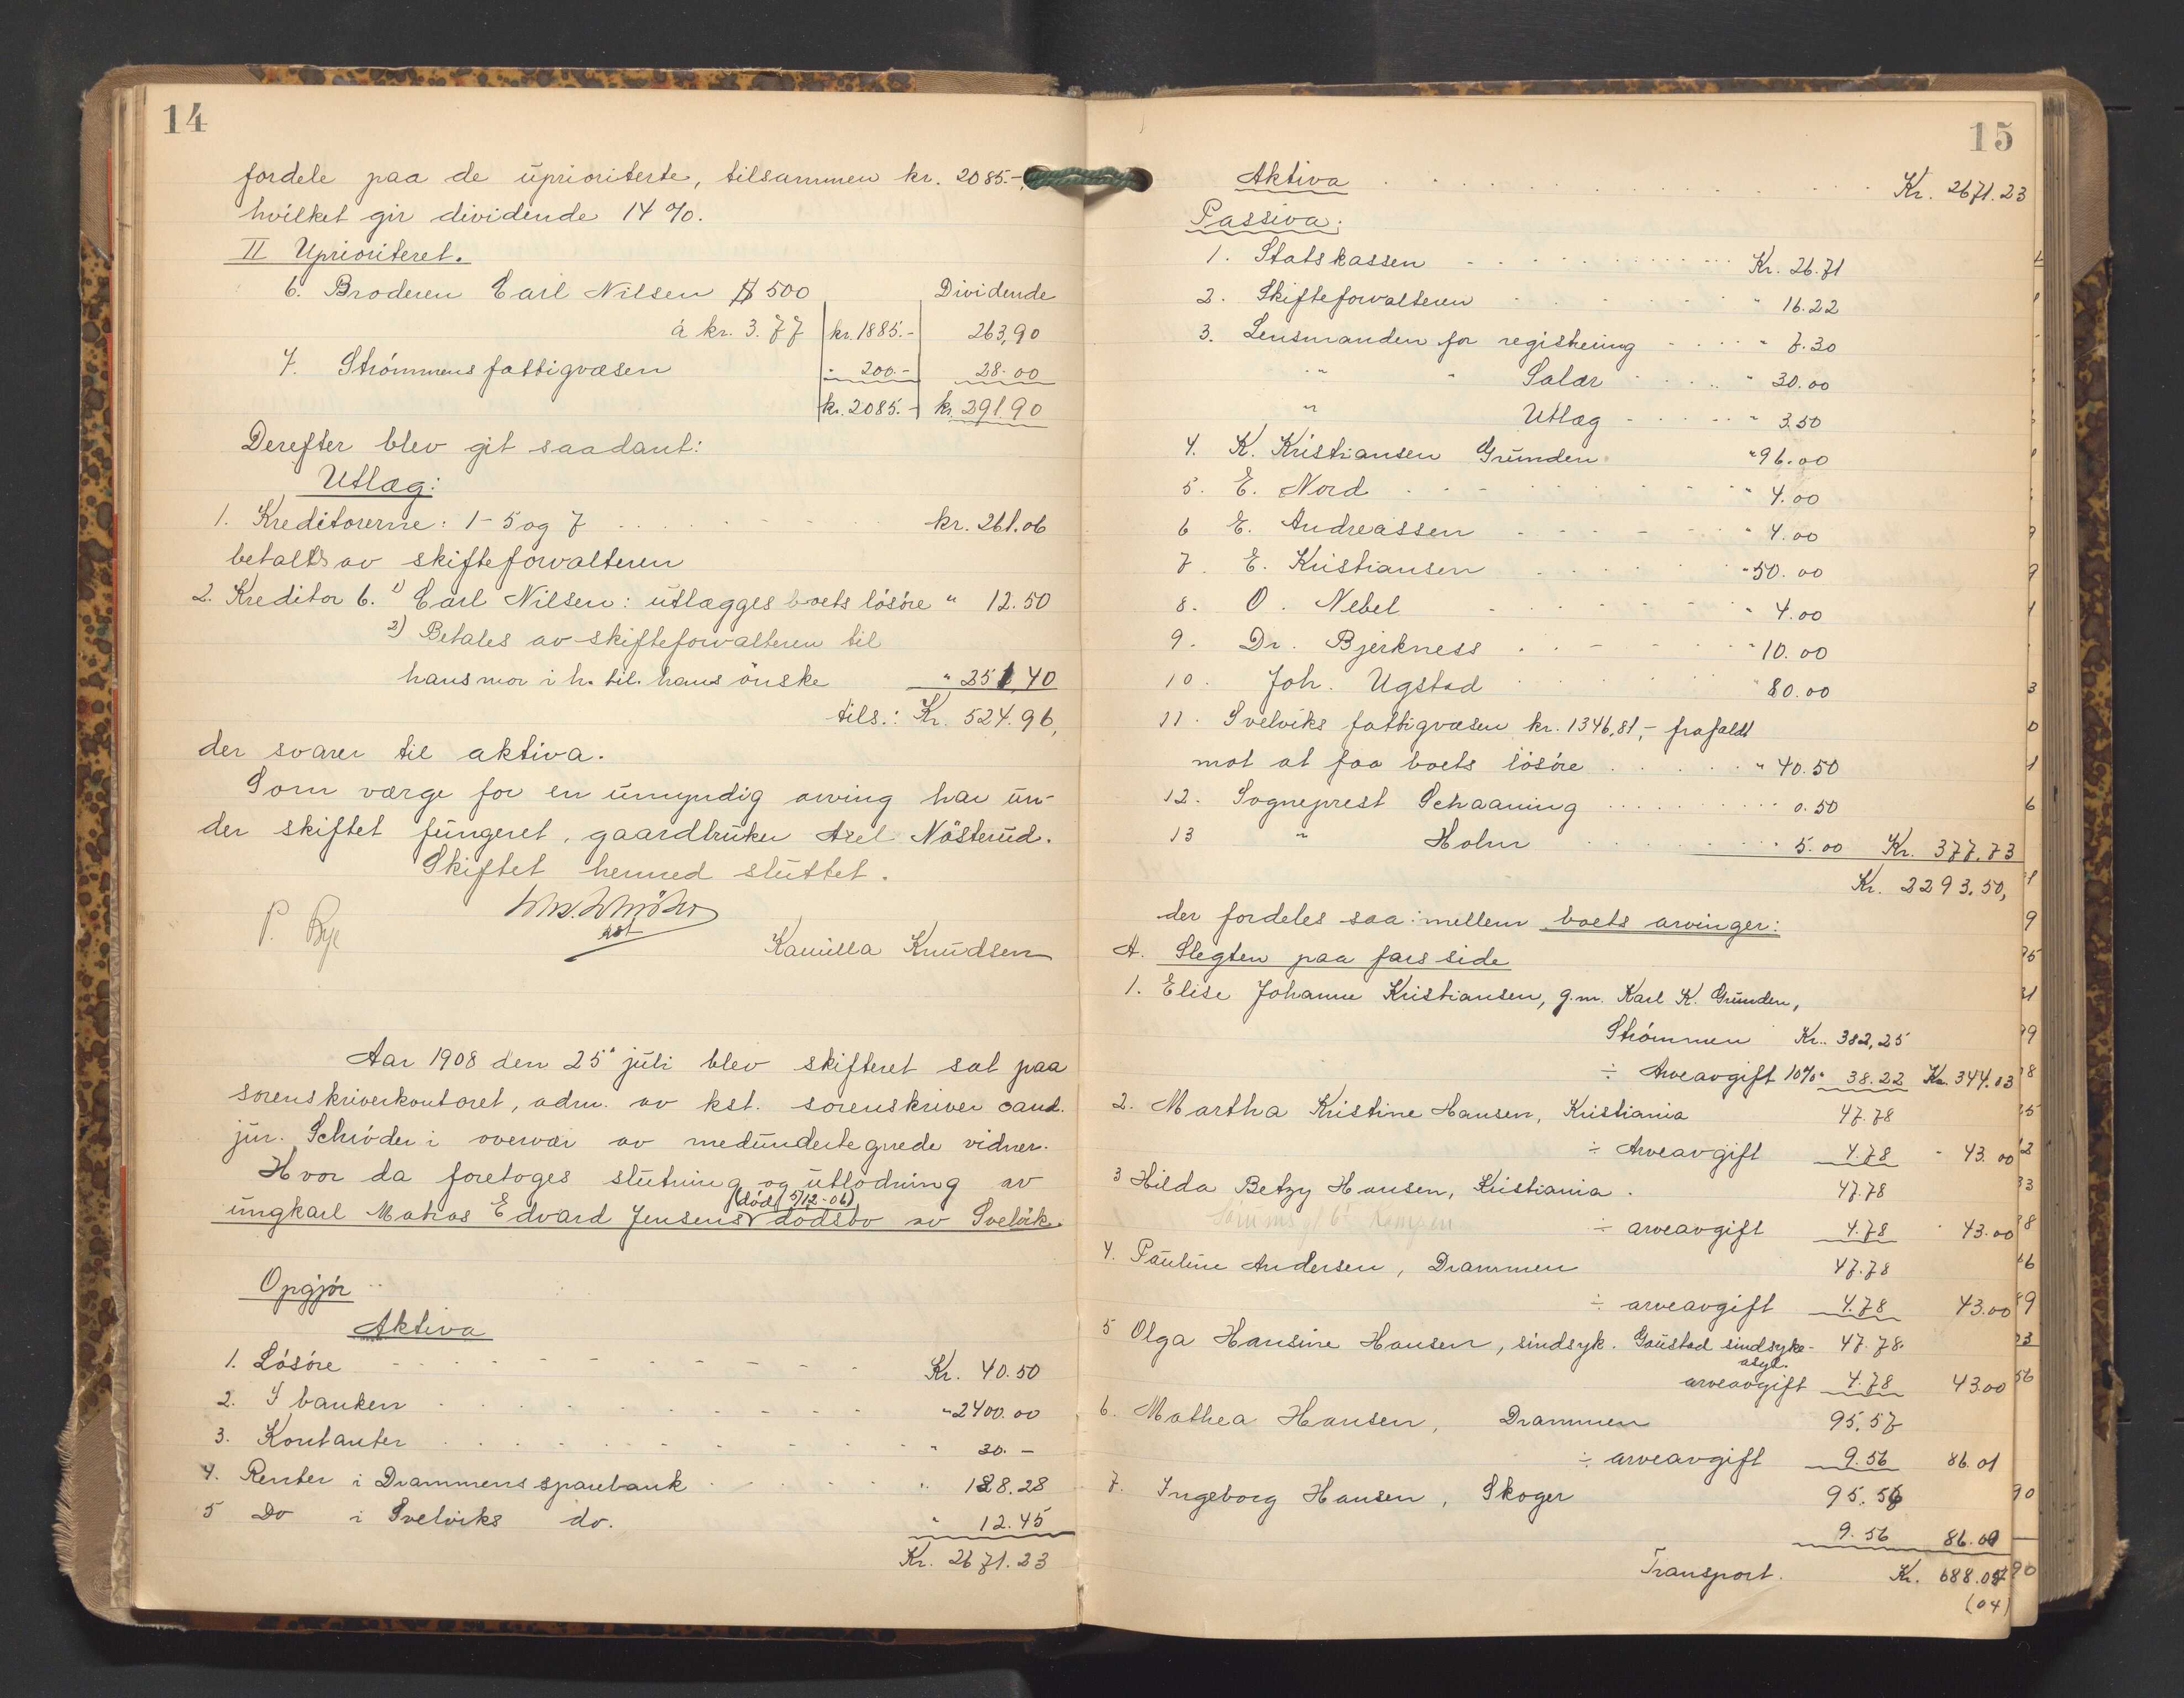 14
fordele paa de uprioriterte, tilsammen kr. 2085.-,
hvilket gir dividende 14 %.
II Uprioriteret.
6. Broderen Carl Nilsen $ 500 Dividende
á kr. 3.77 kr. 1885.- 263,90
7. Strömmens fattigvæsen " 200.- 28.00
kr. 2085.- kr. 291.90
Derefter blev git saadant:
Utlæg:
1. Kreditorerne: 1-5 og 7 kr. 261.06
betales av skifteforvalteren
2. Kreditor 6. 1) Carl Nilsen: utlægges boets lösöre " 12.50
2) Betales av skifteforvalteren til
hans mor i h. til. hans önske " 251,40
tils.: Kr. 524.96,
der svarer til aktiva.
Som værge for en umyndig arving har un-
der skiftet fungeret, gaardbruker Axel Nösterud.
Skiftet hermed sluttet.
P. Bye
kst
Kamilla Knudsen
Aar 1908 den 25' juli blev skifteret sat paa
sorenskriverkontoret, adm. av kst. sorenskriver cand.
jur. Schröder i overvær av medundertegnede vidner.
Hvor da foretoges slutning og utlodning av
(död 5/12-06)
ungkarl Matias Edvard Jensens dödsbo av Svelvik.
Opgjör
Aktiva
1. Lösöre Kr. 40.50
2. I banken " 2400.00
3. Kontanter " 30.-
4. Renter i Drammens sparebank " 188.28
5 Do i Svelviks do. " 12.45
Kr. 2671.23
15
Aktiva Kr. 2671.23
Passiva:
1. Statskassen Kr. 26.71
2. Skifteforvalteren " 16.22
3. Lensmanden for registrering " 7.30
" " Salær " 30.00
" Utlæg " 3.50
4. K. Kristiansen Grunden " 96.00
5. E. Nord " 4.00
6 E. Andreassen " 4.00
7. E. Kristiansen " 50.00
8. O. Nebel " 4.00
9. Dr. Bjerkness " 10.00
10. Joh. Ugstad " 80.00
11. Svelviks fattigvæsen kr. 1346,81,- frafaldt
mot at faa boets lösöre " 40.50
12. Sogneprest Schaaning 0.50
13 " Holm 5.00 Kr. 377.73
Kr. 2293.50,
der fordeles saa: mellem boets arvinger:
A. Slegten paa fars side
1. Elise Johanne Kristiansen, g.m. Karl K. Grunden,
Strömmen Kr. 382,25
÷ Arveavgift 10% " 38.22 Kr. 344.03
2. Martha Kristine Hansen, Kristiania 47.78
÷ Arveavgift 4.78 " 43.00
3 Hilda Betzy Hansen, Kristiania. 47.78
÷ arveavgift 4.78 " 43.00
4. Pauline Andersen, Drammen 47.78
÷ arveavgift 4.78 43.00
5 Olga Hansine Hansen, sindsyk. Gaustad sindsyke- 47.78.
asyl.
arveavgift 4.78 43.00
6. Mathea Hansen, Drammen 95.57
÷ arveavgift 9.56 86.01
7. Ingeborg Hansen, Skoger 95.56
9.56 86.00
Transport. Kr. 688.04
(04)